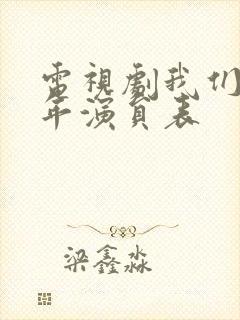 電視劇我们
年演員表
梁鑫淼